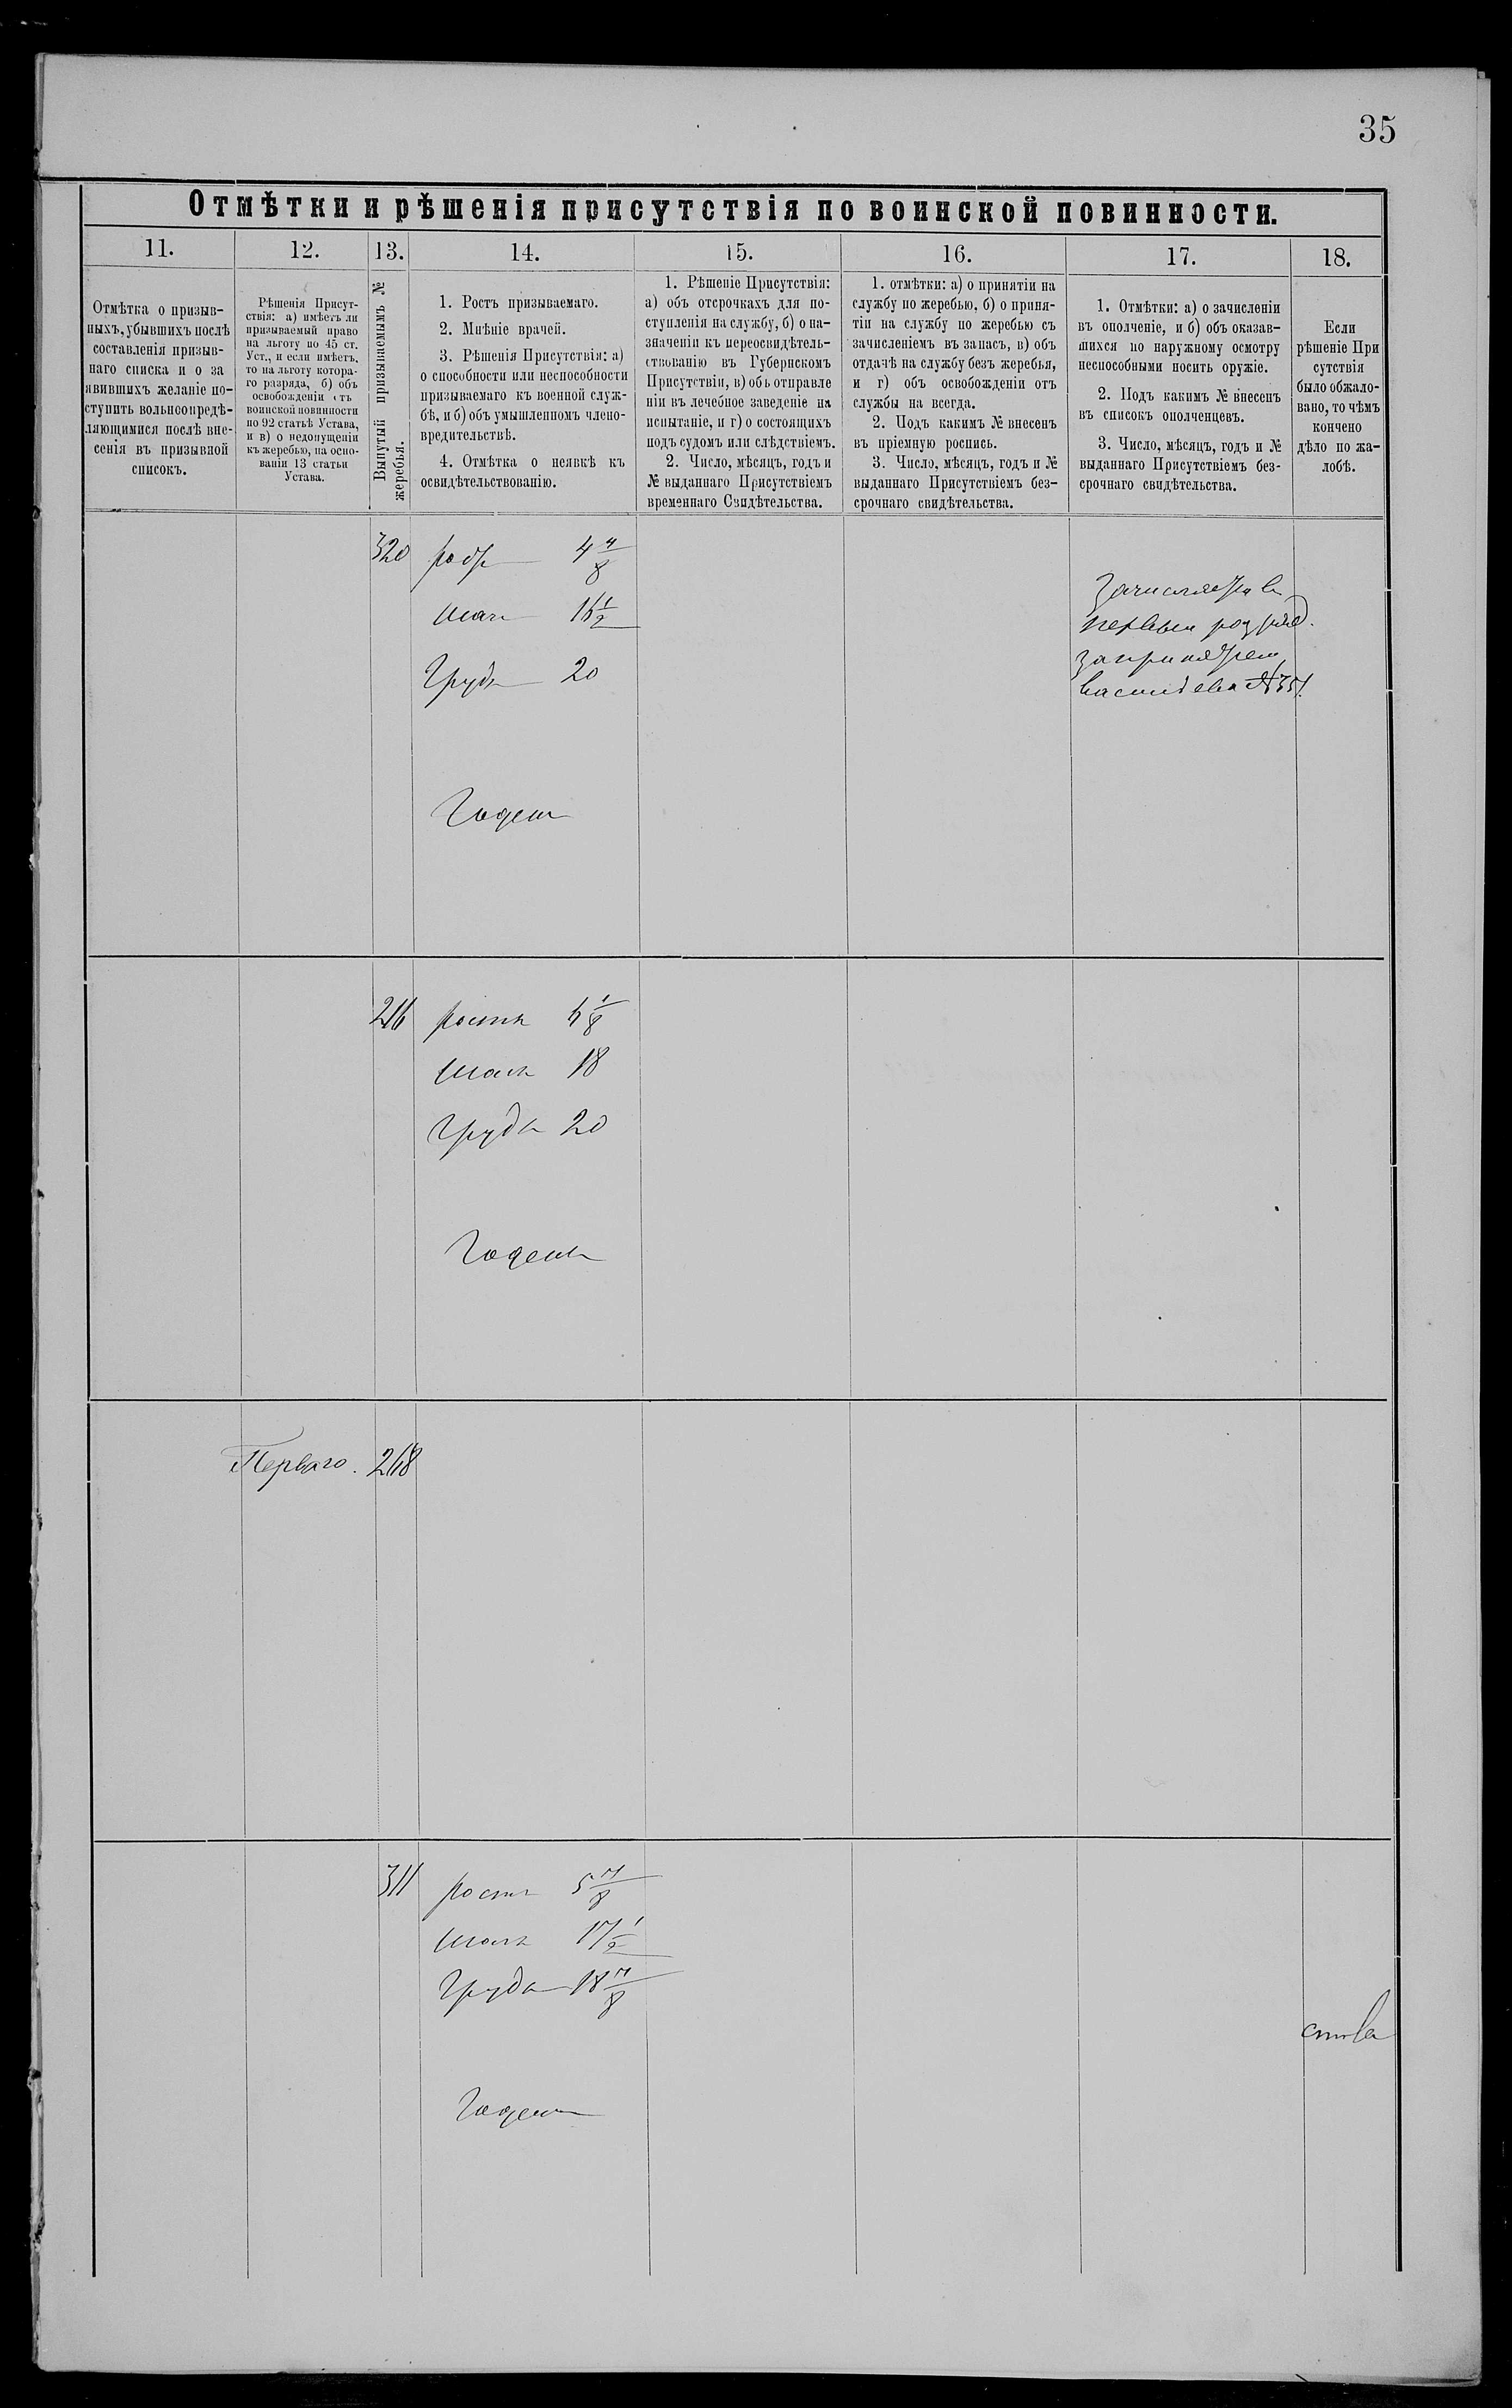 35
Отмѣтки и рѣшенія присутствія по воинской повинности.
11.
12.
13.
14.
15.
16.
17.
18.
Отмѣтка о призыв-
ныхъ, убывшихъ послѣ
составленія призыв-
наго списка и о за
явившихъ желаніе по-
ступить вольноопредѣ-
ляющимися послѣ вне-
сенія въ призывной
списокъ.
Рѣшенія Присут-
ствія: а) имѣетъ ли
призываемый право
на льготу по 45 ст.
Уст., и если имѣетъ,
то на льготу котора-
го разряда, б) объ
освобожденіи тъ
воинской повинности
по 92 статьѣ Устава,
и в) о недопущеніи
къ жеребью, на осно-
ваніи 13 статьи
Устава.
Вынутый призываемымъ №
жеребья.
1. Ростъ призываемаго.
2. Мнѣніе врачей.
3. Рѣшенія Присутствія: а)
о способности или неспособности
призываемаго къ военной служ-
бѣ, и б) объ умышленномъ члено-
вредительствѣ.
4. Отмѣтка о неявкѣ къ
освидѣтельствованію.
1. Рѣшеніе Присутствія:
а) объ отсрочкахъ для по-
ступленія на службу, б) о на-
значеніи къ переосвидѣтель-
ствованію въ Губернскомъ
Присутствіи, в) объ отправле
ніи въ лечебное заведеніе на
испытаніе, и г) о состоящихъ
подъ судомъ или слѣдствіемъ.
2. Число, мѣсяцъ, годъ и
№ выданнаго Присутствіемъ
временнаго Свидѣтельства.
1. отмѣтки: а) о принятіи на
службу по жеребью, б) о приня-
тіи на службу по жеребью съ
зачисленіемъ въ запасъ, в) объ
отдачѣ на службу безъ жеребья,
и г) объ освобожденіи отъ
службы на всегда.
2. Подъ какимъ № внесенъ
въ пріемную роспись.
3. Число, мѣсяцъ, годъ и №
выданнаго Присутствіемъ без-
срочнаго свидѣтельства.
1. Отмѣтки: а) о зачисленіи
въ ополченіе, и б) объ оказав-
шихся по наружному осмотру
неспособными носить оружіе.
2. Подъ какимъ № внесенъ
въ списокъ ополченцевъ.
3. Число, мѣсяцъ, годъ и №
выданнаго Присутствіемъ без-
срочнаго свидѣтельства.
Если
рѣшеніе При
сутствія
было обжало-
вано, то чѣмъ
кончено
дѣло по жа-
лобѣ.
320 4 4/8
16 1/2
Грудь 20
Годенъ
Зачисляется въ
первый разряд.
за принятіем
№ 351.
216 ростъ 6 1/8
18
Грудь 20
Годенъ
Перваго. 268
311 ростъ 5 7/8
17 1/2
Грудь 18 7/8
Годенъ